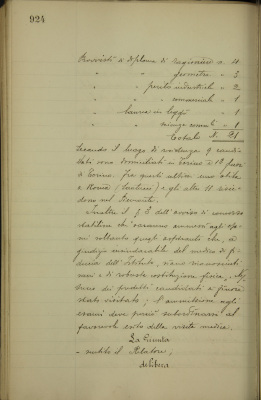 924
Provvisti di diploma di ragioniere n. 4
" " " geometra " 3
" " " perito industriale " 2
" " " commerciale " 1
" " laurea in legge " 1
" " " 1
Totale N. 21
Secondo il luogo di residenza 9 candi-
dati sono domiciliati in Torino e 12 fuori
di Torino. Fra questi ultimi uno abita
a Roma e gli altri 11 risie-
dono nel Piemonte.
Inoltre l'avviso di concorso
stabilisce che saranno ammessi agli esa-
mi soltanto quegli aspiranti che, a
giudizio insindacabile del medico di fi-
ducia dell'Istituto, siano riconosciuti
sani e di robusta costituzione fisica.
dei predetti candidati è finora
stato visitato; l'ammissione agli
esami deve perciò subordinarsi al
favorevole esito della visita medica.
La Giunta
- udito il Relatore;
delibera